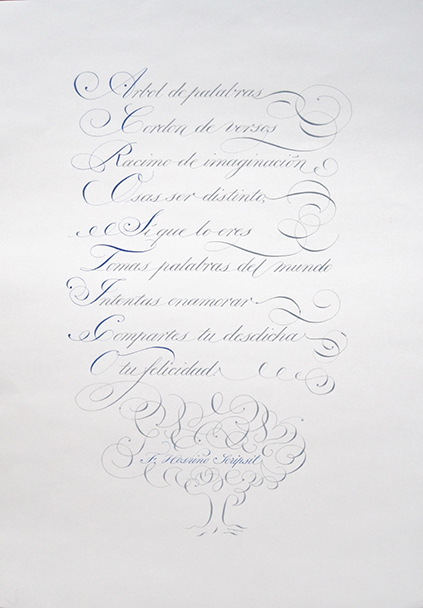 Arbol de palabras
Corden de versos
Racimo de imaginación
Osas ser distinto,
Si que lo eres
Tomas palabras del mundo
Intentas enamorar
Compartes tu desdicha
O tu felicidad.
Scripsit